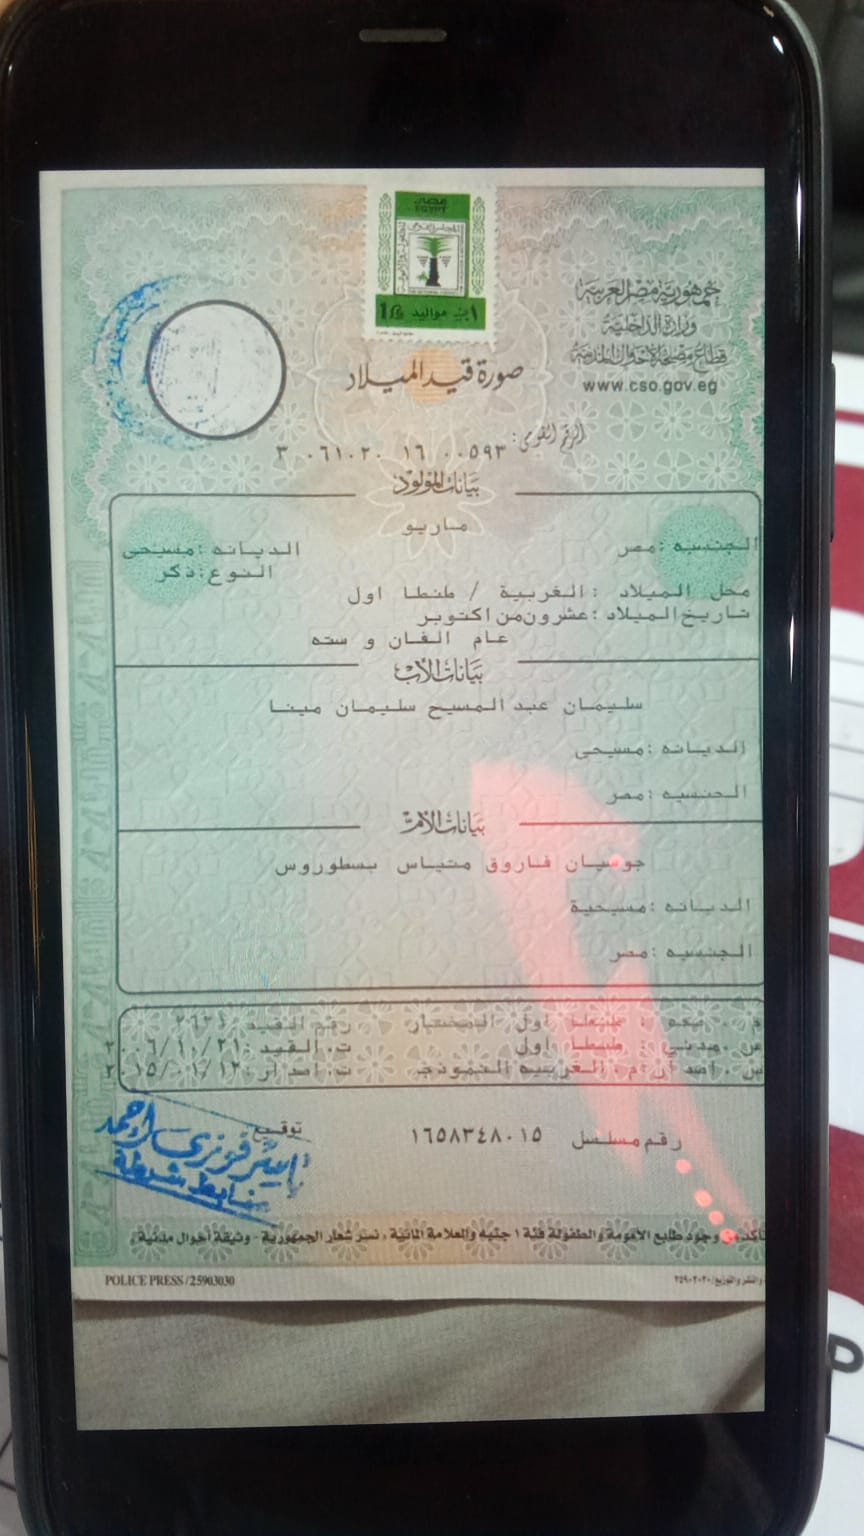 مصر
EGYPT
1£ مواليد ١ جنيه
جمهورية مصر العربية
وزارة الداخلية
قطاع مصلحة الأحوال المدنية
www.cso.gov.eg
صورة قيد الميلاد
الرقم القومى: ٣ ٠٦١٠٢٠ ١٦ ٠٠٥٩٣
بيانات المولود
ماريو
الجنسيه :مصر الديانه :مسيحى
النوع:ذكر
محل الميلاد :الغربية / طنطا اول
تاريخ الميلاد :عشرون من اكتوبر
عام الفان و سته
بيانات الأب
سليمان عبد المسيح سليمان مينا
الديانه :مسيحى
الجنسيه :مصر
بيانات الأم
جوسيان فاروق متياس بسطوروس
الديانه :مسيحية
الجنسيه :مصر
طنطا اول المختار رقم القيد :
مدني : طنطا اول ت. القيد :
اصدار :م. الغربيه النموذجـ ت. اصدار :
رقم مسلسل ١٦٥٨٣٤٨٠١٥
توقيع
ياسر فوزى احمد
ضابط شرطة
وجود طابع الأمومة والطفولة فئة ١ جنيه والعلامة المائية ، نسر شعار الجمهورية - وثيقة أحوال مدنية
POLICE PRESS / 25903030
والنشر والتوزيع/٢٥٩٠٣٠٣٠